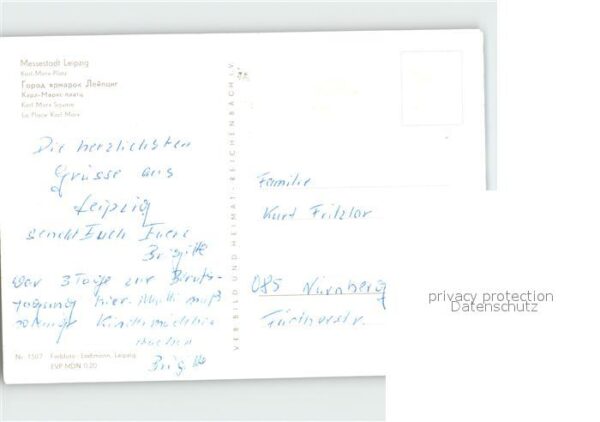 Messestadt Leipzig
Karl-Marx-Platz
Город ярмарок Лейпциг
Карл-Маркс платц
Karl Marx Square
La Place Karl Marx
Die herzlichsten
Grüsse aus
Leipzig
sendet Euch Eure
Brigitte
War 3 Tage zur Berufs-
tagung hier. Mutti muß
solange Kindermädchen
machen
Brigitte
Nr. 1507 Farbfoto: Leetmann, Leipzig
EVP MDN 0.20
VEB BILD UND HEIMAT · REICHENBACH i. V.
Familie
Kurt Fritzlar
085 Nürnberg
Fürtherstr.
privacy protection
Datenschutz